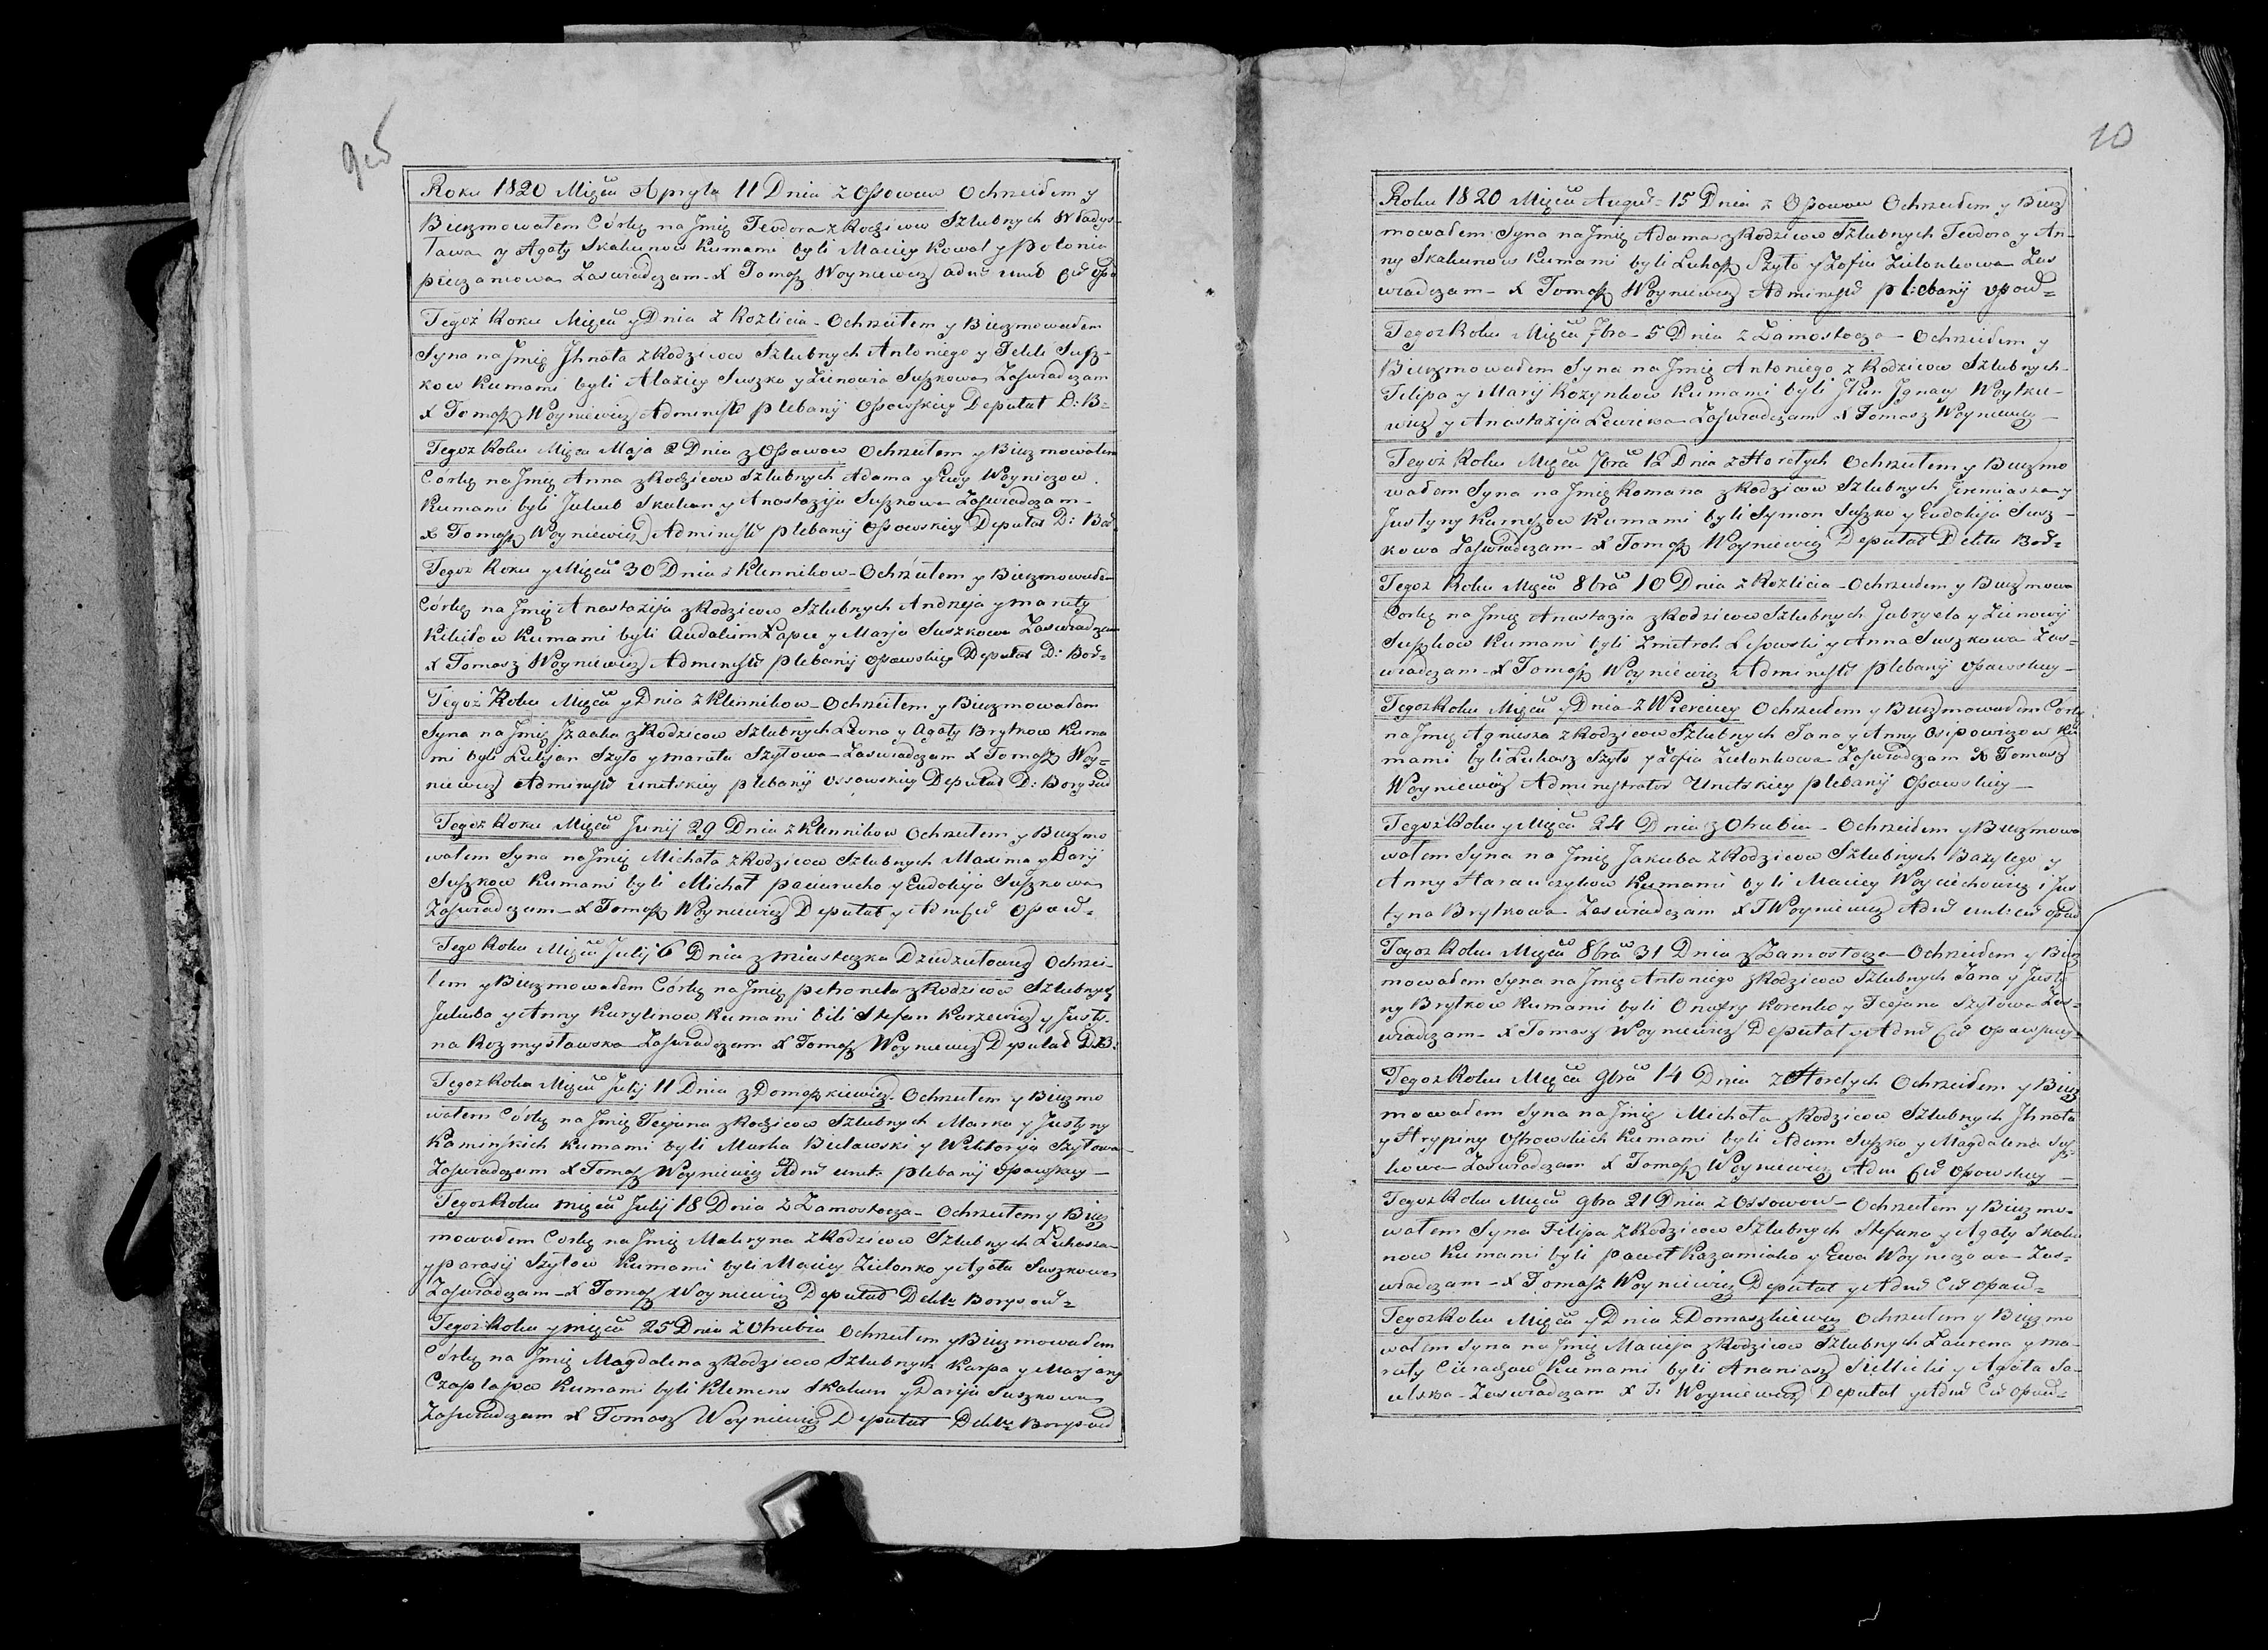 Roku 1820 Mięca Apryla 11 Dnia z Ossowow Ochrzciłem y
Bierzmowałem Córkę na Jmię Teodora z Rodziców Szlubnych Władys-
ława y Agaty Skakunow Kumami byli Maciey Kowal y Polonia
Zaswiadczam X Tomasz Woyniewicz
Tegoż Roku Mięca y Dnia z Kozlicia Ochrzciłem y Bierzmowałem
Syna na Jmię Jhnata z Rodziców Szlubnych Antoniego y Tekli Susz-
kow Kumami byli Alaxiey Suszko y Zienowia Suszkowa Zaswiadczam
X Tomasz Woyniewicz Administr Plebanij Ossowskiey Deputat D: B=
Tegoż Roku Mięca Maja 2 Dnia z Ossowow Ochrzciłem y Bierzmowałem
Córkę na Jmię Anna z Rodziców Szlubnych Adama y Ewy Woyniczow
Kumami byli Jakub Skakun y Anastazija Suszkowa Zaswiadczam
X Tomasz Woyniewicz Administr Plebanij Ossowskiey Deputat D: Bor
Tegoż Roku y Mięca 30 Dnia z Klennikow Ochrzciłem y Bierzmowałem
Córkę na Jmię Anastazija z Rodziców Szlubnych Andrzeja y Maruty
Kumami byli Audakim Łapec y Marja Suszkowa Zaswiadczam
X Tomasz Woyniewicz Administr Plebanij Ossowskiey Deputat D: Bor=
Tegoż Roku Mięca y Dnia z Klennikow Ochrzciłem y Bierzmowałem
Syna na Jmię Jzaaka z Rodziców Szlubnych Leona y Agaty Brytkow Kuma
mi byli Lukjan Szyto y Maruta Szytowa Zaswiadczam X Tomasz Woy=
niewicz Administr Unitskiey Plebanij Ossowskiey Deputat D: Borysow
Tegoż Roku Mięca Junij 29 Dnia z Klennikow Ochrzciłem y Bierzmo
wałem Syna na Jmię Michała z Rodziców Szlubnych Maxima y Darij
Suszkow Kumami byli Michał Paciarucho y Eudokija Suszkowa
Zaswiadczam X Tomasz Woyniewicz Deputat y Ossow=
Tego Roku Mięca Julij 6 Dnia z Miasteczka Ochrzci-
łem y Bierzmowałem Córkę na Jmię Petronela z Rodziców Szlubnych
Jakuba y Anny Kurylinow Kumami bili Stefan Karzewicz y Justy-
na Rozmysławska Zaswiadczam X Tomasz Woyniewicz Deputat D: B:
Tegoż Roku Mięca Julij 11 Dnia z Domaszkiewicz Ochrzciłem y Bierzmo
wałem Córkę na Jmię Tecjana z Rodziców Szlubnych Marka y Justyny
Kaminskich Kumami byli Marka Bielawski y Wiktorija Szytowa
Zaswiadczam X Tomasz Woyniewicz Adm Unit: Plebanij Ossowskiey
Tegoż Roku Mięca Julij 18 Dnia z Zamostocza Ochrzciłem y Bierz
mowałem Corkę na Jmię Makryna z Rodziców Szlubnych Łukasza
y Parasij Szytow Kumami byli Maciey Zielonko y Agata Suszkowa
Zaswiadczam X Tomasz Woyniewicz Deputat Dekt= Borysow=
Tegoż Roku y Mięca 25 Dnia z Ohrubia Ochrzciłem y Bierzmowałem
Córkę na Jmię Magdalena z Rodziców Szlubnych Karpa y Marjany
Czaplajow Kumami byli Klemens Skakun y Darija Suszkowa
Zaswiadczam X Tomasz Woyniewicz Deputat Dekt= Borysow
10
Roku 1820 Mięca August= 15 Dnia z Ossowow Ochrzciłem y Bierz
mowałem Syna na Jmię Adama z Rodziców Szlubnych Teodora y An-
ny Skakunow Kumami byli Łukasz Szyto y Zofia Zielonkowa Zas
wiadczam X Tomasz Woyniewicz Administr Plebanij Ossow=
Tegoż Roku Mięca 7bra 5 Dnia z Zamostocza Ochrzciłem y
Bierzmowałem Syna na Jmię Antoniego z Rodziców Szlubnych
Filipa y Marij Kozynkow Kumami byli JPan Jgnacy Woytke-
wicz y Anastazija Zaswiadczam X Tomasz Woyniewicz
Tegoż Roku Mięca 7bra 12 Dnia z Horełych Ochrzciłem y Bierzmo
wałem Syna na Jmię Romana z Rodziców Szlubnych Jeremiasza y
Justyny Kumami byli Symon Suszko y Eudokija Susz-
kowa Zaswiadczam X Tomasz Woyniewicz Deputat Dektu Bor=
Tegoż Roku Mięca 8bra 10 Dnia z Kozlicia Ochrzciłem y Bierzmowa
Corkę na Jmię Anastazia z Rodziców Szlubnych Gabryela y Zienowij
Suszkow Kumami byli Zmitrok Lisowski y Anna Suszkowa Zas=
wiadczam X Tomasz Woyniewicz Administr Plebanij Ossowskiey
Tegoż Roku Mięca y Dnia z Wierciey Ochrzciłem y Bierzmowałem Corkę
na Jmię Agnieszka z Rodziców Szlubnych Jana y Anny Osipowiczow Ku
mami byli Łukasz Szyto y Zofia Zielonkowa Zaswiadczam X Tomasz
Woyniewicz Administrator Unitskiey Plebanij Ossowskiey
Tegoż Roku y Mięca 24 Dnia z Ohrubia Ochrzciłem y Bierzmowa
wałem Syna na Jmię Jakuba z Rodziców Szlubnych Bazylego y
Anny Kumami byli Maciey Woyciechowicz i Jus
tyna Brytkowa Zaswiadczam X T Woyniewicz
Tegoż Roku Mięca 8bra 31 Dnia z Zamostocza Ochrzciłem y Bierz
mowałem Syna na Jmię Antoniego z Rodziców Szlubnych Jana y Justy
ny Brytkow Kumami byli Onufry Korenko y Tecjana Szytowa Zas=
wiadczam X Tomasz Woyniewicz Deputat y Adm Ossowskiey
Tegoż Roku Mięca 9bra 14 Dnia z Horełych Ochrzciłem y Bierz
mowałem Syna na Jmię Michała z Rodziców Szlubnych Jhnata
y Hrypiny Ossowskich Kumami byli Adam Suszko y Magdalena Susz
kowa Zaswiadczam X Tomasz Woyniewicz Adm Ossowskiey
Tegoż Roku Mięca 9bra 21 Dnia z Ossowow Ochrzciłem y Bierzmo-
wałem Syna Filipa z Rodziców Szlubnych Stefana y Agaty Skaku
now Kumami byli Paweł Kazamiako y Ewa Woyniczowa Zas=
wiadczam X Tomasz Woyniewicz Deputat y Adm Ossow=
Tegoż Roku Mięca y Dnia z Domaszkiewicz Ochrzciłem y Bierzmo
wałem Syna na Jmię Macieja z Rodziców Szlubnych Laurena y Ma-
ruty Kumami byli Ananiasz y Agata Sa-
Zaswiadczam X T: Woyniewicz Deputat y Adm Ossow=